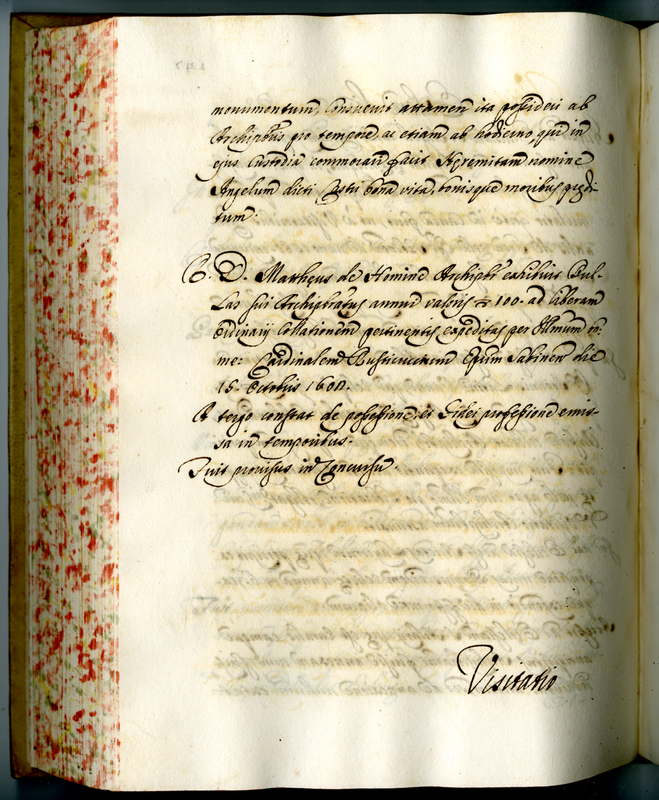 monumentum, Consuevit attamen ita possideri ab
Archipbris pro tempore, ac etiam ab hodierno, qui in
ejus Custodia commorari facit Heremitam nomine
Angelum dicti Castri bona vita, bonisque moribus
tum.
R. D. Mattheus de Homine Archipbr exhibuit Bul-
las sui Archipbratus annui valoris 100. ad liberam
Ordinarij Collationem pertinentis expeditas per Illmum
me: Cardinalem Rusticuccium Epum Sabinen die
15. Octobris
A tergo constat de possessione, et Fidei professione emis-
sa in temporibus.
Fuit provisus in Concursu.
Visitatio